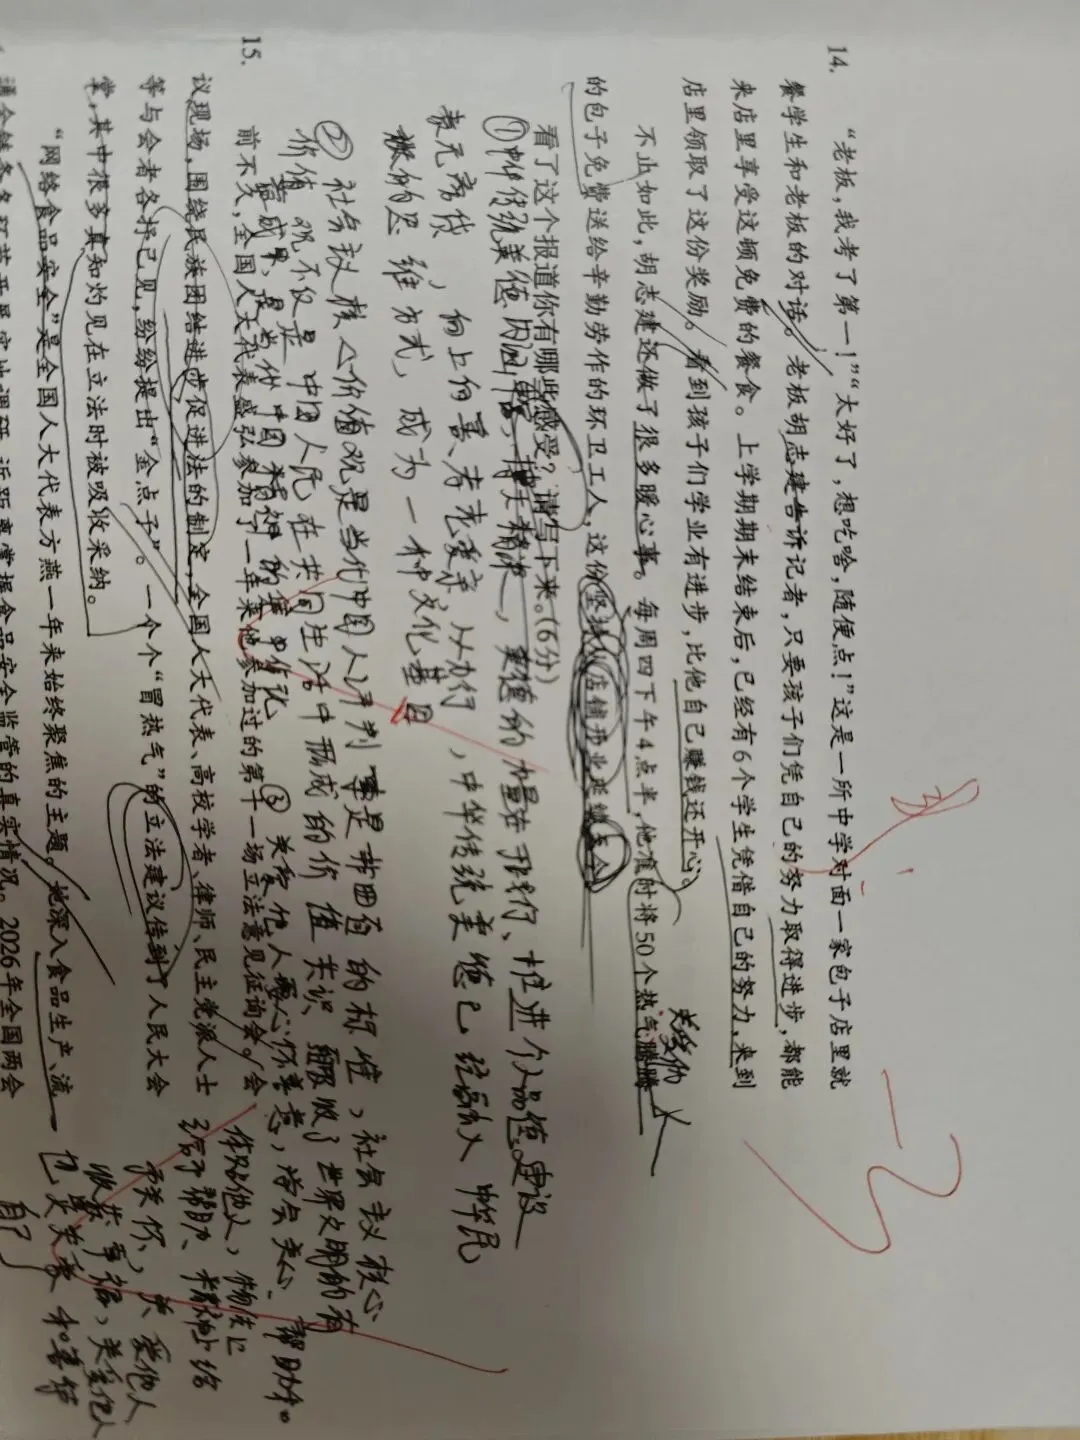 14.
“老板,我考了第一!”“太好了,想吃啥,随便点!”这是一所中学对面一家包子店里就
餐学生和老板的对话。老板胡志建告诉记者,只要孩子们凭自己的努力取得进步,都能
来店里享受这顿免费的餐食。上学期期末结束后,已经有6个学生凭借自己的努力,来到
店里领取了这份奖励。看到孩子们学业有进步,比他自己赚钱还开心。
关爱他人
不止如此,胡志建还做了很多暖心事。每周四下午4点半,他准时将50个热气腾腾
的包子免费送给辛勤劳作的环卫工人,这份坚持从店铺开业延续至今
看了这个报道你有哪些感受?请写下来。(6分)
①中华传统美德 美德的力量在于践行、推进个人品德建设
向上向善、孝老爱亲 ,中华传统美德已经融入中华民
思维方式,成为一种文化基因
②社会主义核心价值观是当代中国人评判是非曲直的标准,社会主义核心
价值观不仅是中国人民在共同生活中形成的价值共识
是当代中国精神的集中体现
③关爱他人要心怀善意,学会关心、帮助他人。
体贴他人,物质上
给予帮助、精神上给
予关怀,关爱他人
收获幸福,关爱他人
也是关爱和善待
自己
15.
前不久,全国人大代表盛弘参加了一年来她参加过的第十一场立法意见征询会。会
议现场,围绕民族团结进步促进法的制定,全国人大代表、高校学者、律师、民主党派人士
等与会者各抒己见,纷纷提出“金点子”。一个个“冒热气”的立法建议传到了人民大会
堂,其中很多真知灼见在立法时被吸收采纳。
“网络食品安全”是全国人大代表方燕一年来始终聚焦的主题。她深入食品生产、流
通全链条各环节开展实地调研,近距离掌握食品安全监管的真实情况。2026年全国两会